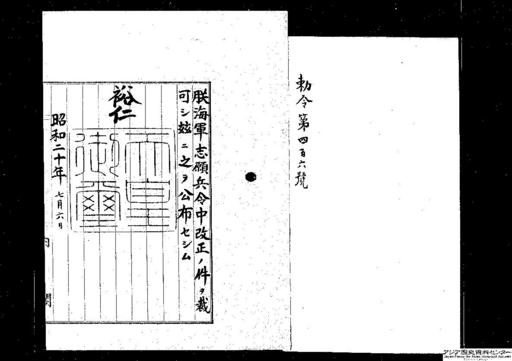 勅令第四百六號
朕海軍志願兵令中改正ノ件ヲ裁
可シ玆ニ之ヲ公布セシム
裕仁
天皇御璽
昭和二十年七月六日
内閣
アジア歴史資料センター